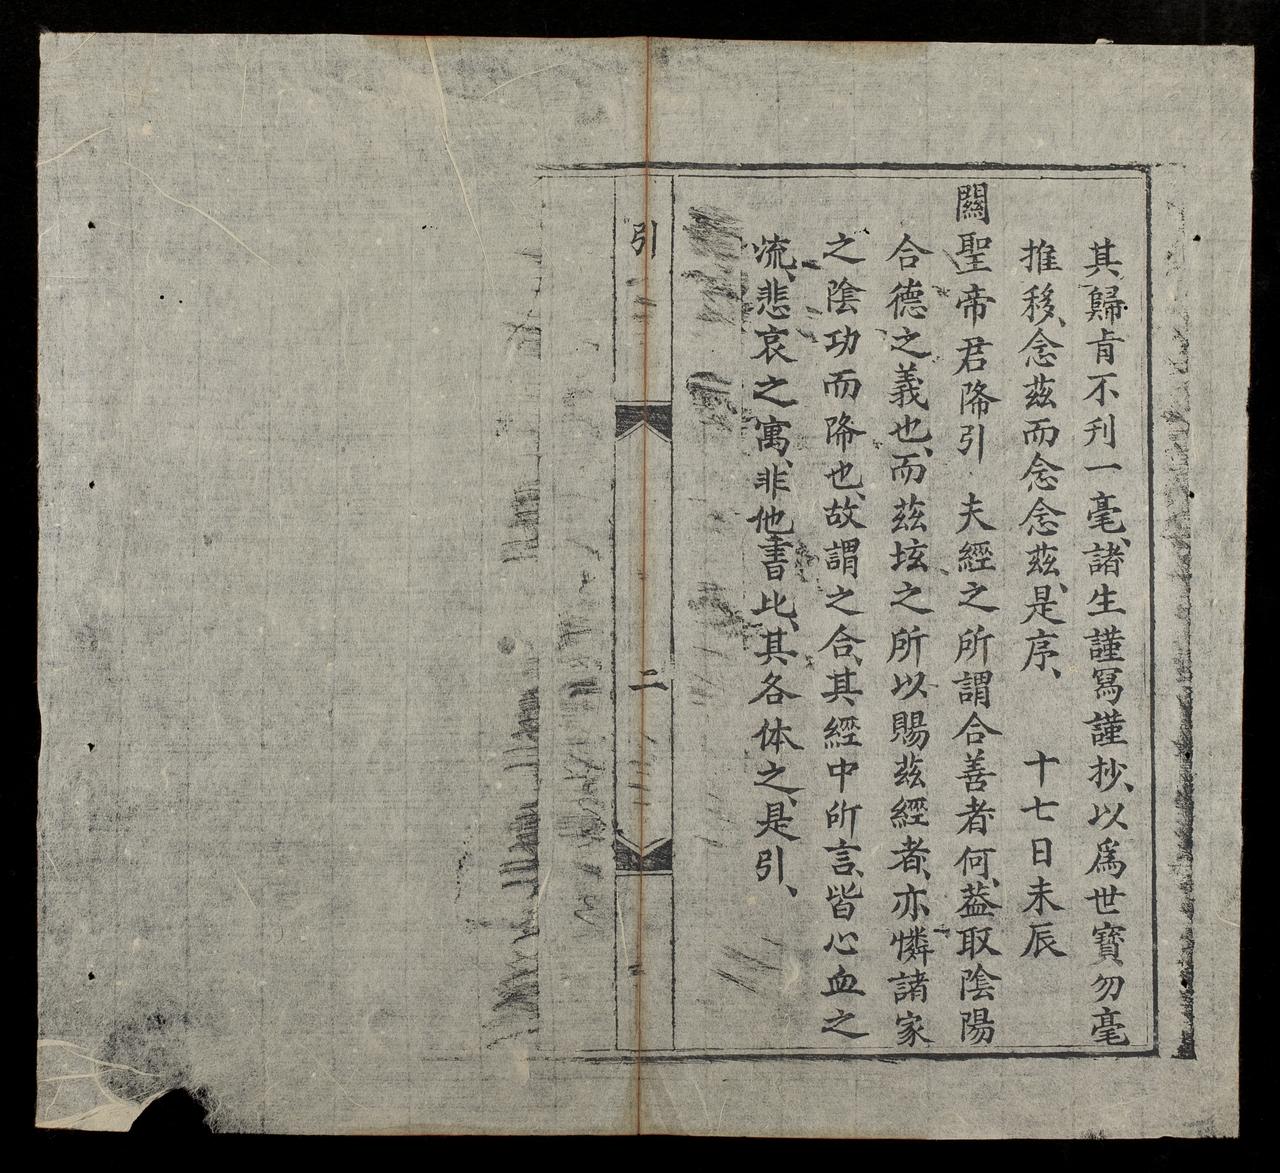 其歸肯不刊一毫、諸生謹寫謹抄、以爲世寳勿毫
推移、念茲而念念茲、是序、　十七日未辰
關聖帝君降引　夫經之所謂合善者何、葢取陰陽
合德之義也、而茲垓之所以賜茲經者、亦憐諸家
之陰功而降也、故謂之合、其經中所言、皆心血之
流、悲哀之寓、非他書比、其各体之、是引、
引
二